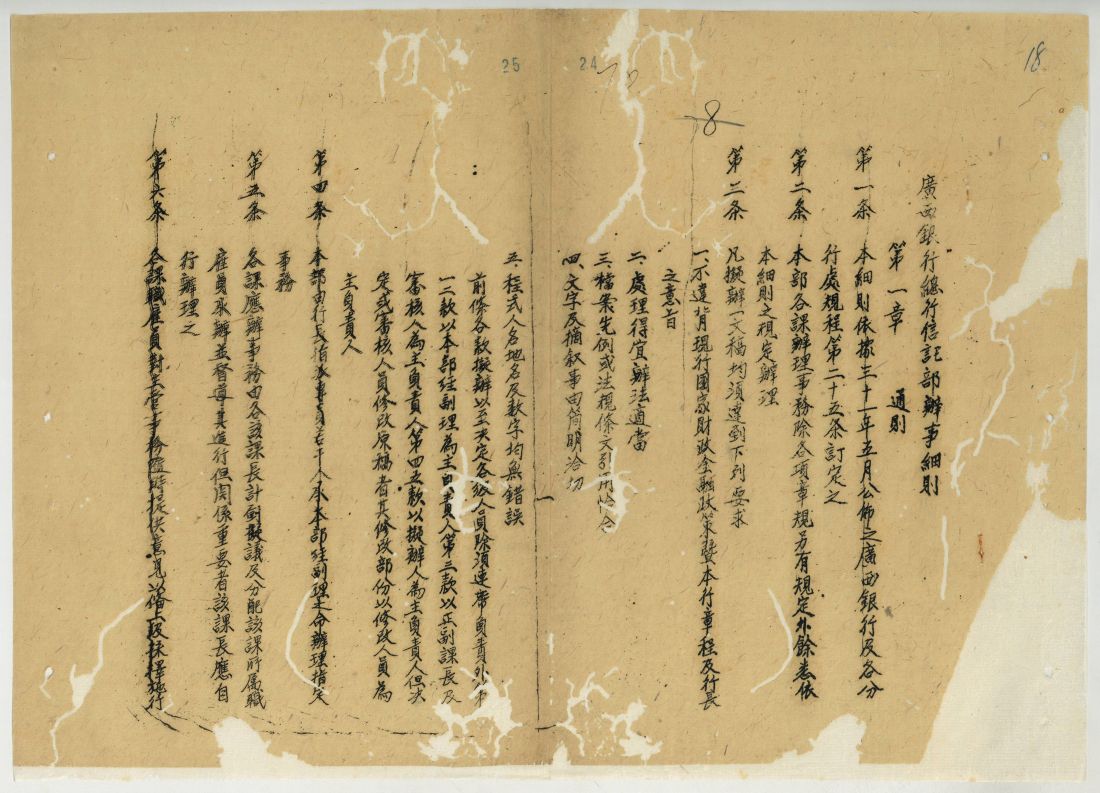 18
24
25
8
廣西銀行總行信託部辦事細則
第一章 通則
第一条 本細則依據三十一年五月公佈之廣西銀行及各分
行處規程第二十五条訂定之
第二条 本部各課辦理事務除各項章規另有規定外餘悉依
本細則之規定辦理
第三条 凡擬辦一文稿均須達到下列要求
一、不違背現行國家財政金融政策暨本行章程及行長
之意旨
二、處理得宜辦法適當
三、檔案先例或法規條文引用恰合
四、文字及摘叙事由簡明洽切
五、程式人名地名及数字均無錯誤
前條各款擬辦以至决定各級人員除須連帶負責外第
一二款以本部經副理為主負責人第三款以正副課長及
審核人為主負責人第四五款以擬辦人為主負責人但决
定或審核人員修改原稿者其修改部份以修改人員為
主負責人
第四条 本部由行長指派專員若干人承本部經副理之命辦理指定
事務
第五条 各課應辦事務由各該課長計劃擬議及分配該課所属職
雇員承辦並督導其進行但関係重要者該課長應自
行辦理之
第六条 各課職雇員對主管事務應時提供意見以備上級採擇施行